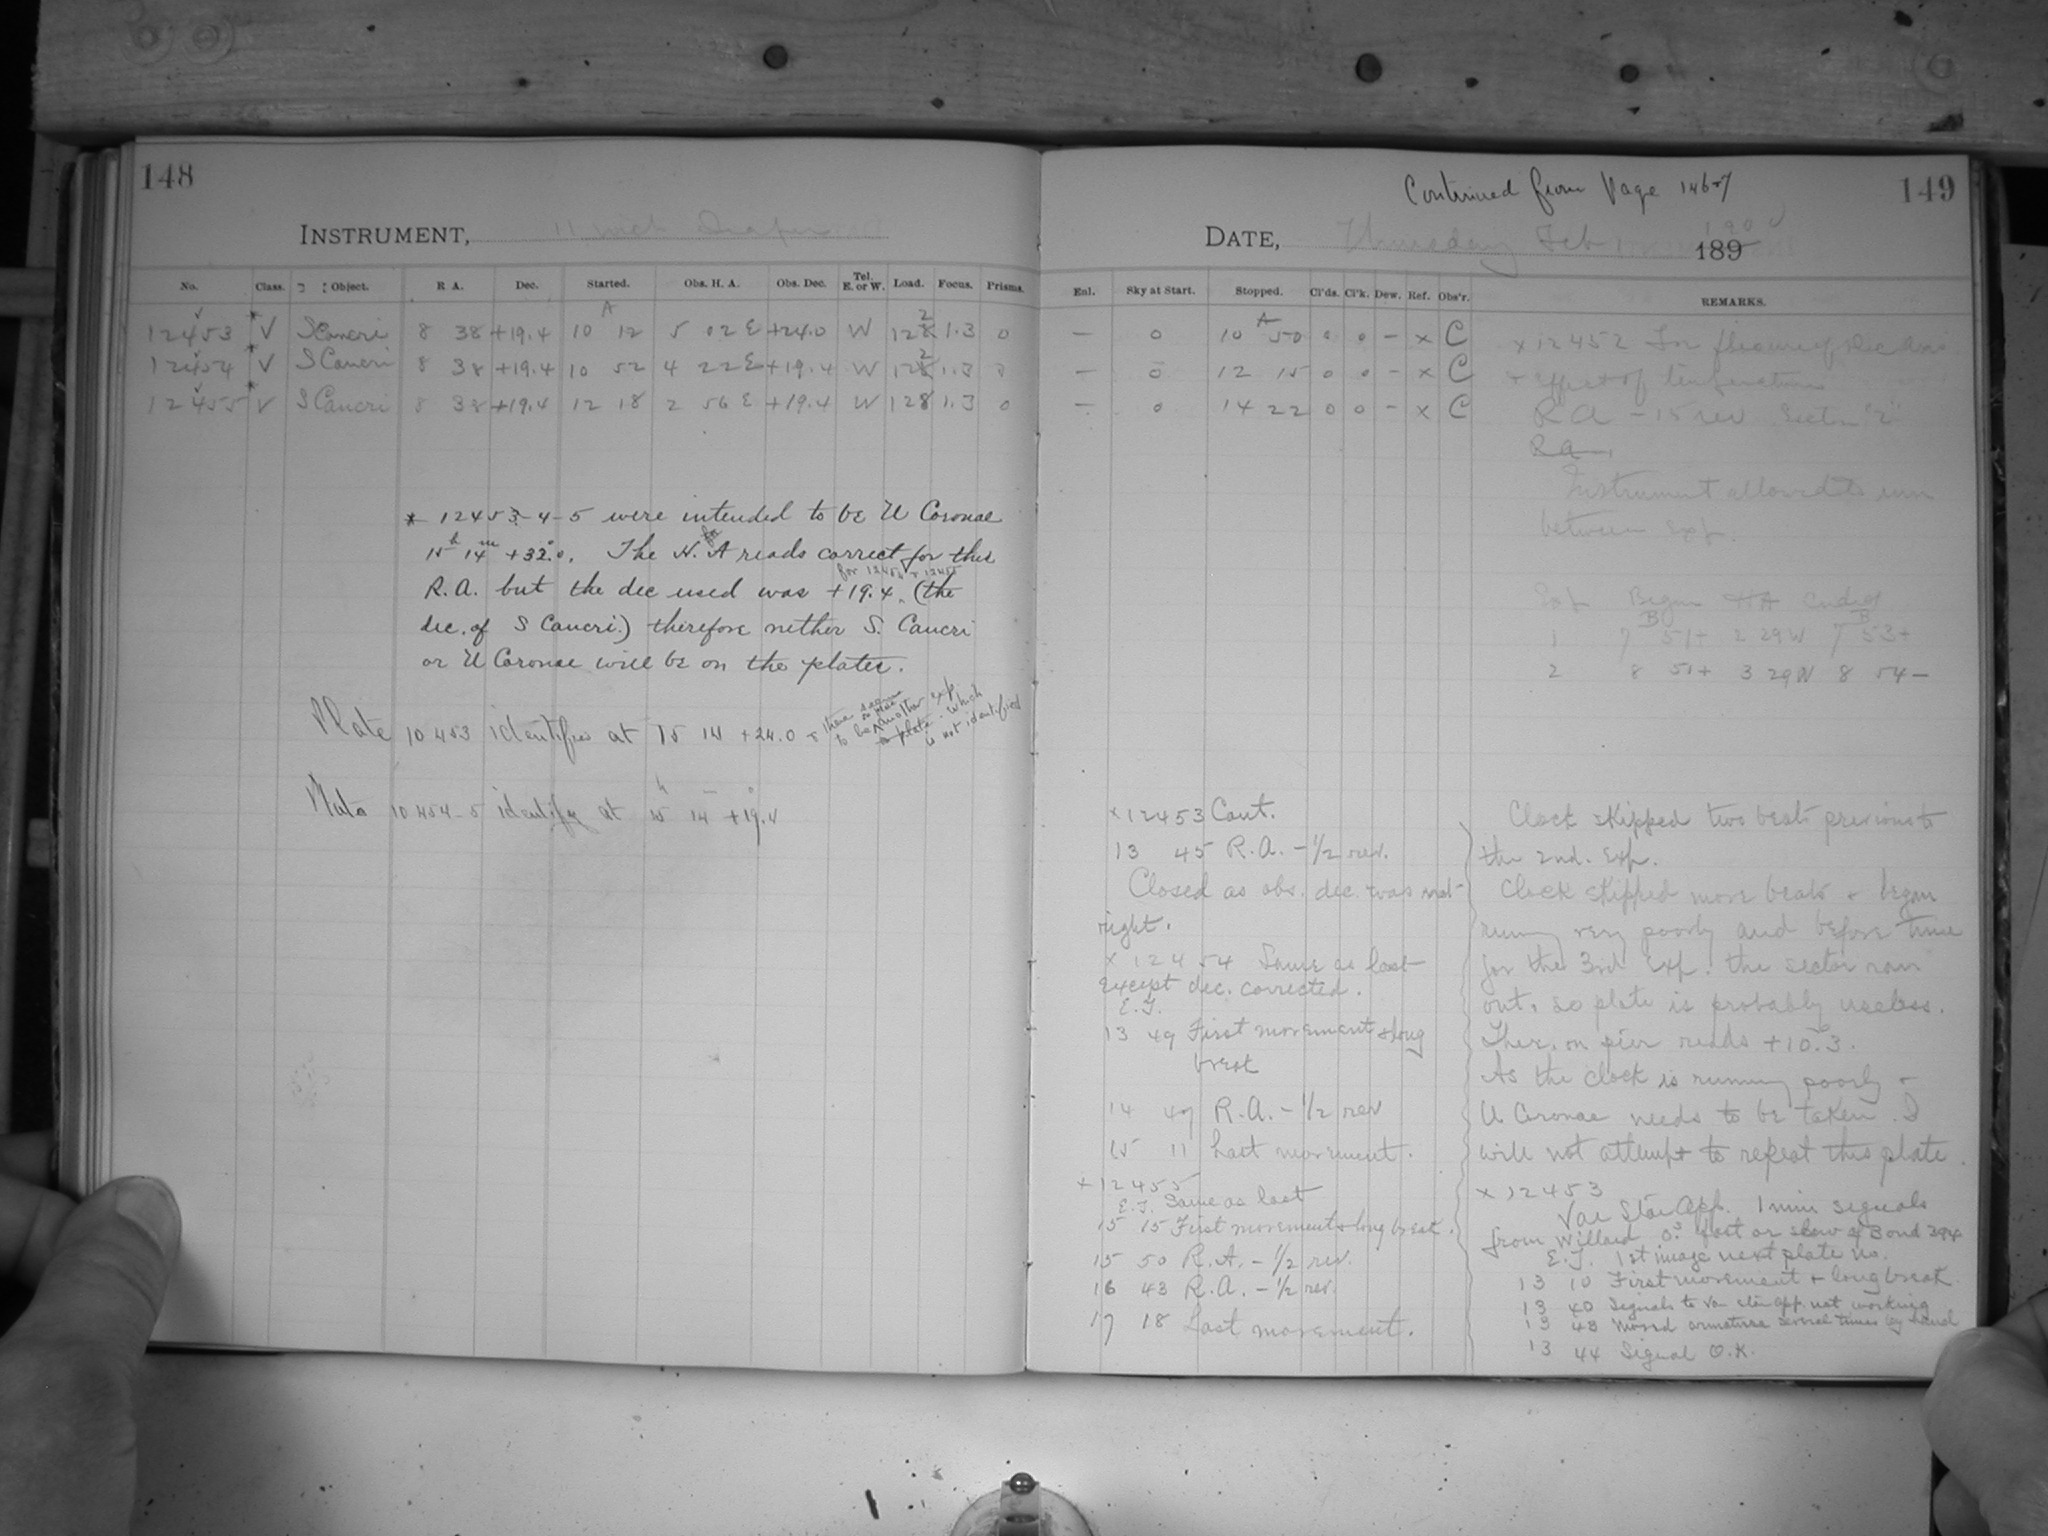 148
INSTRUMENT, 11 inch Draper
No. Class. Object. R A. Dec. Started. Obs. H. A. Obs. Dec. Tel. E. or W. Load. Focus. Prisms.
12453 V S Cancri 8 38 +19.4 10 A 12 5 02 E +24.0 W 1.3 0
12454 V S Cancri 8 38 +19.4 10 52 4 22 E +19.4 W 1.3
12455 V S Cancri 8 38 +19.4 12 18 2 56 E +19.4 W 128 1.3 0
* 12453-4-5 were intended to be U Coronae
15h 14m +32°.0. The H.A reads correct for this
R.A. but the dec used was for 12454 + 12455 +19.4. (the
dec. of S Cancri.) therefore nether S. Cancri
or U Coronae will be on the plates.
Plate 10453 identifies at 15 14 +24.0 + there seems
to be another exp.
plate which
is not identified
Plate 10454-5 identify at 15h 14m +19.4
Continued from Page 146-7
149
DATE, Thursday Feb 1 1900 189
Enl. Sky at Start. Stopped. Cl'ds. Cl'k. Dew. Ref. Obs'r. REMARKS.
— 0 10 A 50 0 0 – x C
— 0 12 15 0 0 – x C
— 0 14 22 0 0 – x C
x 12452 For flexure of
+ effect of temperature
R.A – 15 rev. Sector "2"
R.a.
Instrument allowed to run
between exp.
Exp Began HA Ended
1 7 B 51+ 2 29 W 7 B 53+
2 8 51+ 3 29 W 8 54 –
x 12453 Cont.
13 45 R.A. – 1/2 rev.
Closed as obs. dec. was not
right.
x 12454 Same as last
except dec. corrected.
E.F.
13 49 First movement + long
break
14 49 R.A. – 1/2 rev
15 11 Last movement.
x 12455
E.F. Same as last
15 15 First movement + long break.
15 50 R.A. – 1/2 rev.
16 43 R.A. – 1/2 rev.
17 18 Last movement.
Clock skipped two beats previous to
the 2nd. Exp.
Clock skipped more beats + began
running very poorly and before time
for the 3rd Exp. the sector ran
out, so plate is probably useless.
Ther. on pier reads +10°.3.
As the clock is running poorly +
U Coronae needs to be taken. I
will not attempt to repeat this plate.
x 12453
Var Star App. 1 min signals
from Willard 0s fast or slow of Bond 394
E.F. 1st image next plate no.
13 10 First movement + long break
13 40 Signals to Var star app. not working
13 43 Moved armature several times by hand
13 44 Signal O.K.